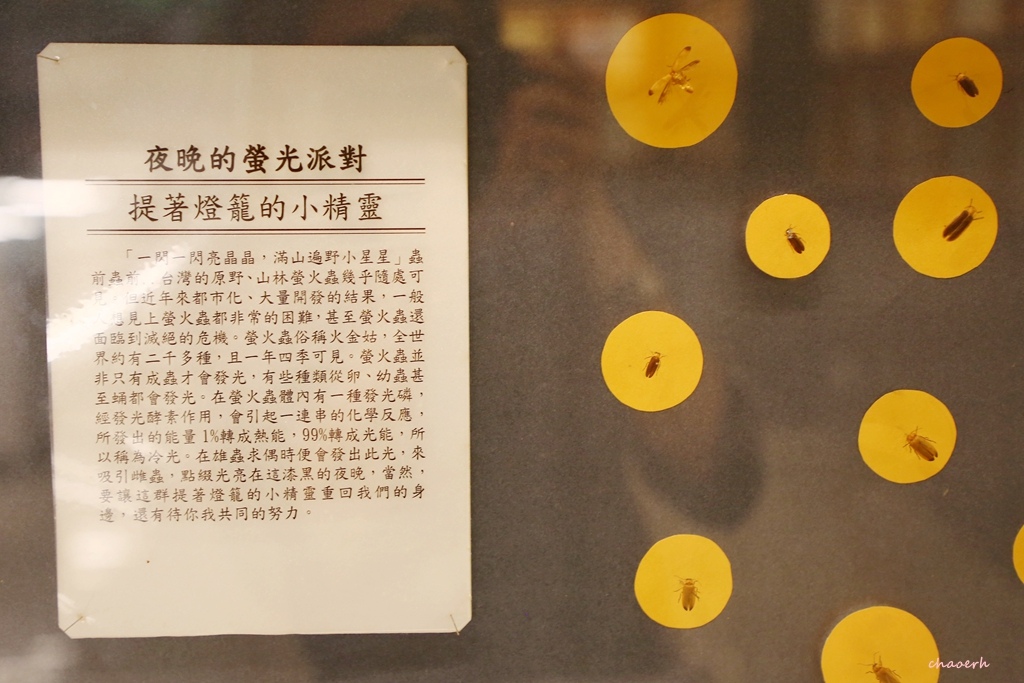 夜晚的螢光派對
提著燈籠的小精靈
「一閃一閃亮晶晶，滿山遍野小星星」蟲
前蟲前，台灣的原野、山林螢火蟲幾乎隨處可
，但近年來都市化、大量開發的結果，一般
見上螢火蟲都非常的困難，甚至螢火蟲還
面臨到滅絕的危機。螢火蟲俗稱火金姑，全世
界約有二千多種，且一年四季可見。螢火蟲並
非只有成蟲才會發光，有些種類從卵、幼蟲甚
至蛹都會發光。在螢火蟲體內有一種發光磷，
經發光酵素作用，會引起一連串的化學反應，
所發出的能量1%轉成熱能，99%轉成光能，所
以稱為冷光。在雄蟲求偶時便會發出此光，來
吸引雌蟲，點綴光亮在這漆黑的夜晚，當然，
要讓這群提著燈籠的小精靈重回我們的身
邊，還有待你我共同的努力。
chaoerh